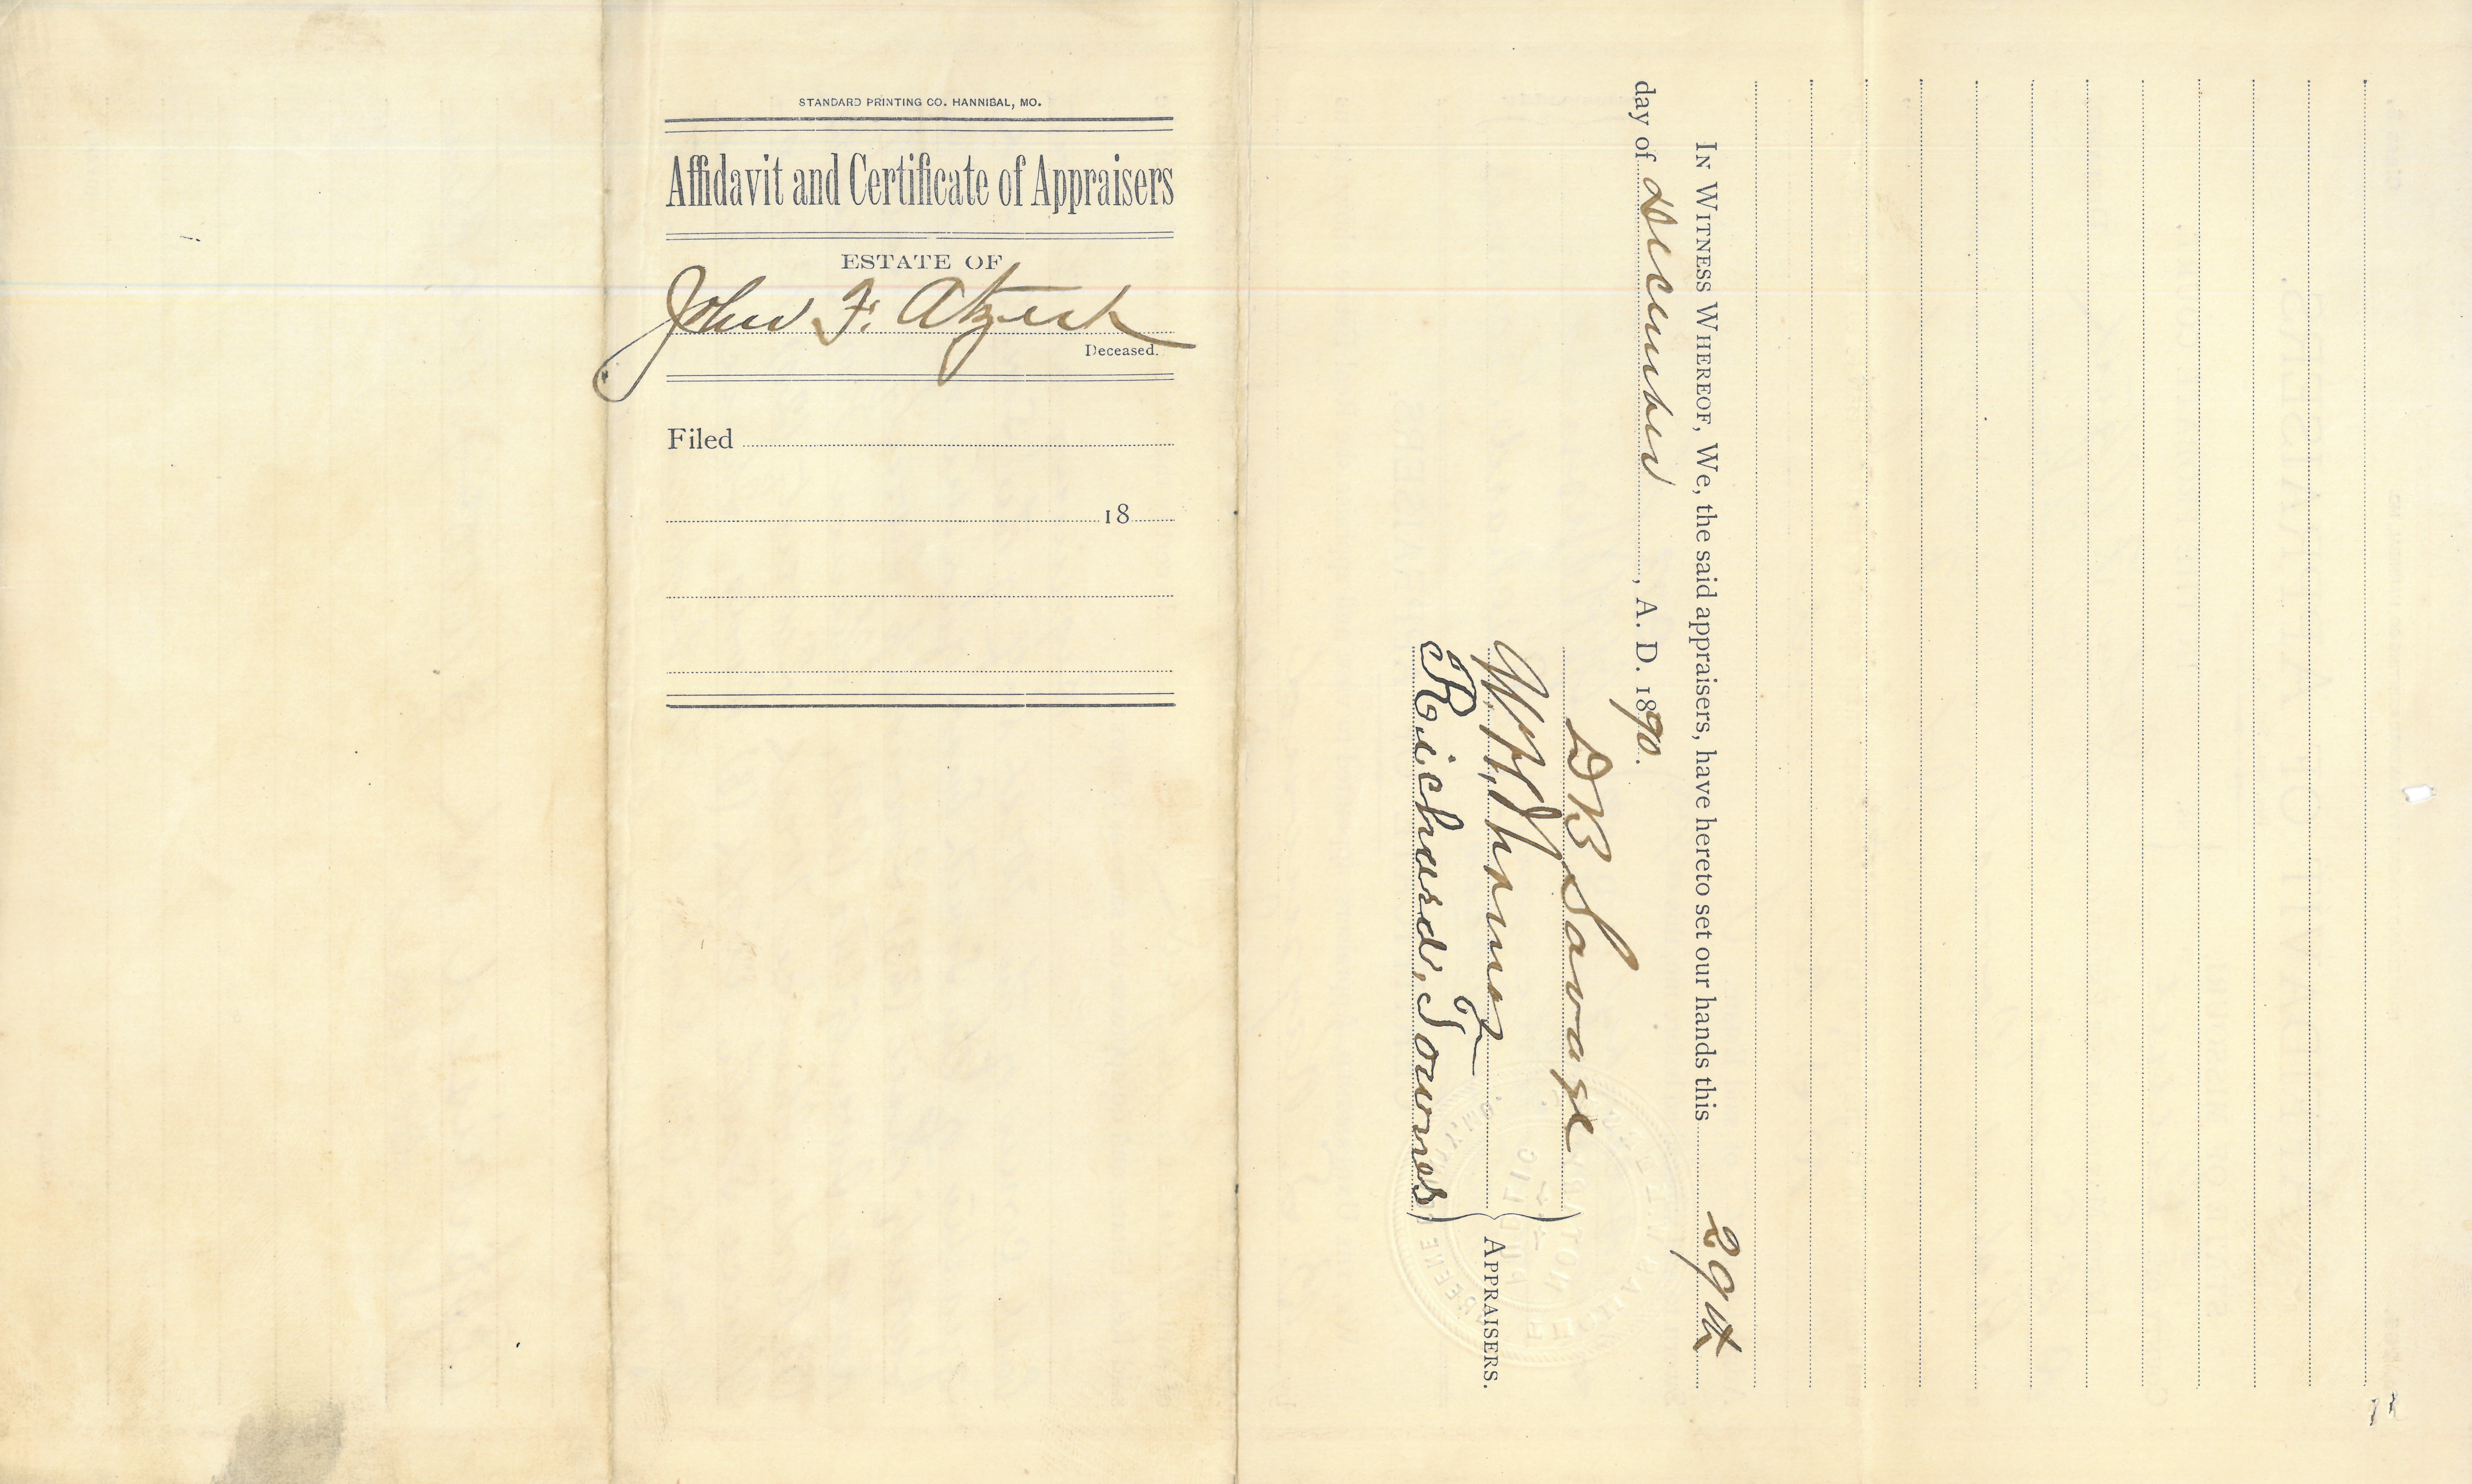 STANDARD PRINTING CO. HANNIBAL, MO.
Affidavit and Certificate of Appraisers
ESTATE OF
John F. Atzert
Deceased.
Filed
18
IN WITNESS WHEREOF, We, the said appraisers, have hereto set our hands this 29th
day of December, A. D. 1890.
D B Savage
W. H.
Richard. Townes
APPRAISERS.
NOTARY
PUBLIC